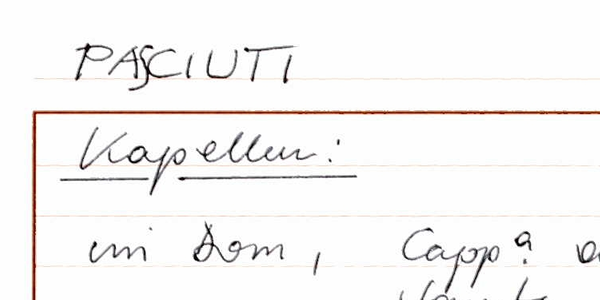 PASCIUTI
Kapellen:
im Dom, Capp.ª